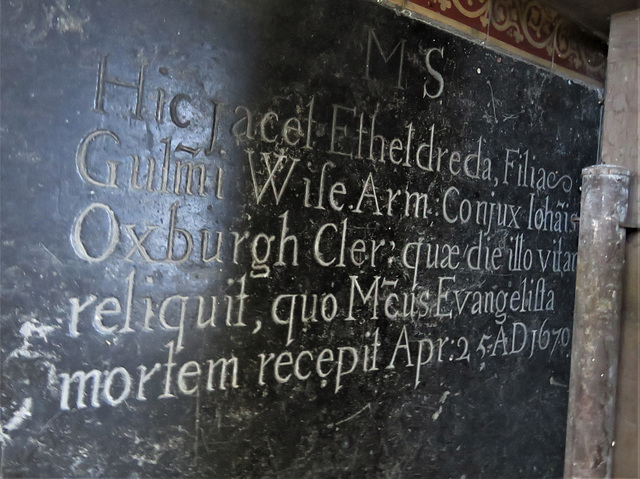 M S
Hic jacet Etheldreda, Filia
Gulm̃i Wiſe Arm: Conjux Johãis
Oxburgh Cler: quæ die illo vitam
reliquit, quo Mc̃us Evangeliſta
mortem recepit Apr: 25 AD 1670